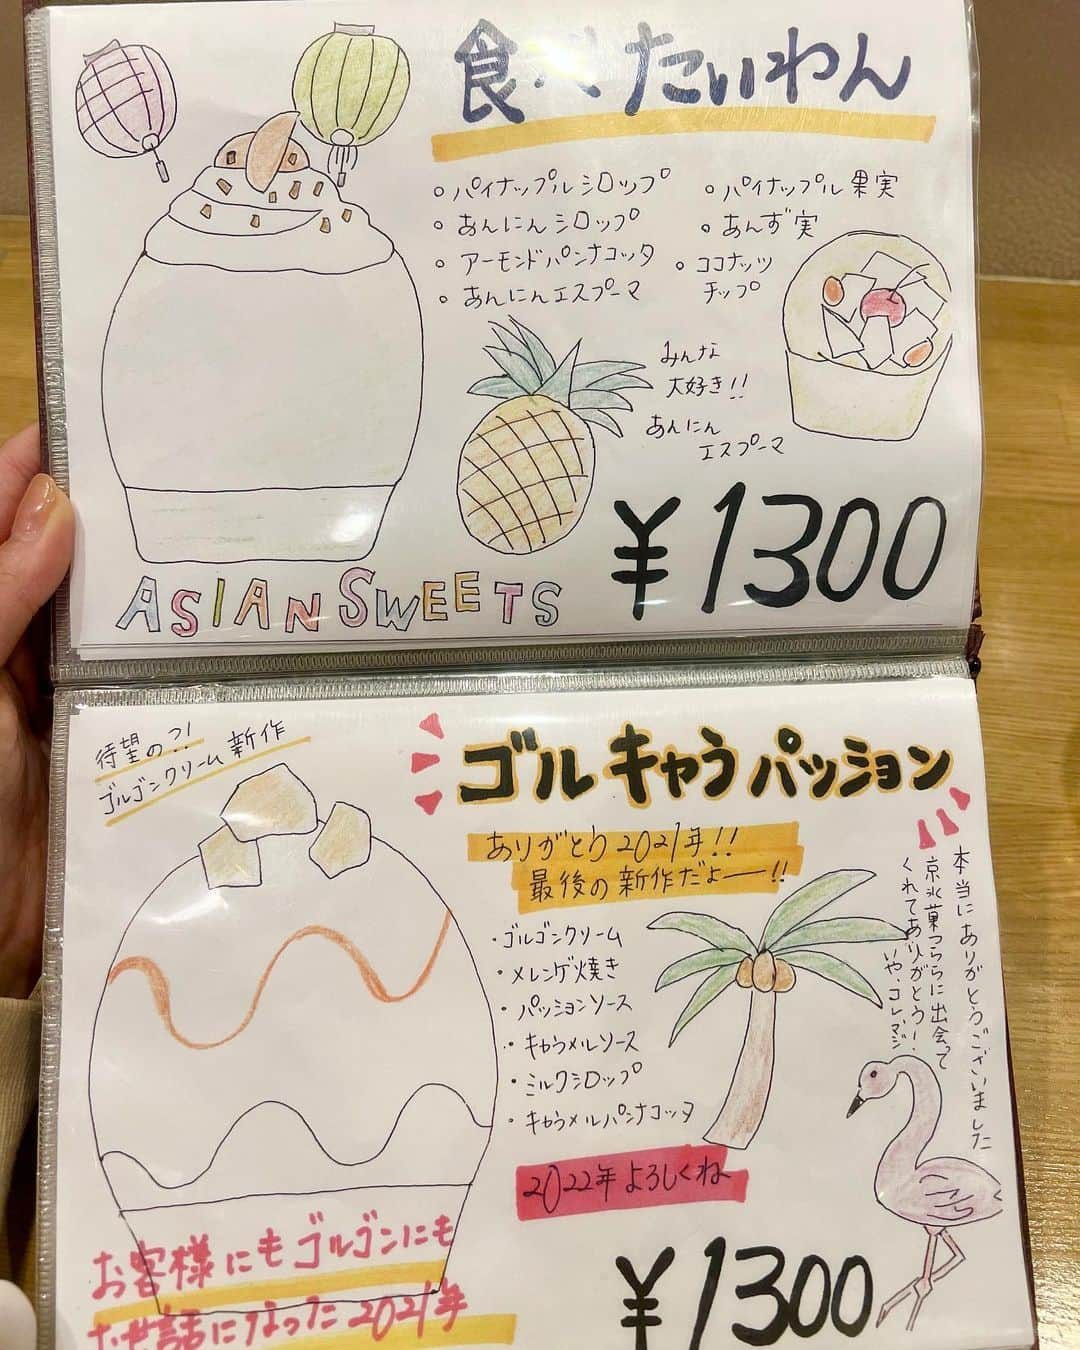 食べたいわん
。パイナップルシロップ
。あんにんシロップ
。アーモンドパンナコッタ
。あんにんエスプーマ
。パイナップル果実
。あんず実
。ココナッツ
チップ
みんな
大好き!!
あんにん
エスプーマ
¥1300
ASIAN SWEETS
待望の?!
ゴルゴンクリーム新作
ゴルキャラパッション
ありがとう2021年!!
最後の新作だよー!!
・ゴルゴンクリーム
・メレンゲ焼き
・パッションソース
・キャラメルソース
・ミルクシロップ
・キャラメルパンナコッタ
本当にありがとうございました
京氷菓つららに出会って
くれてありがとう!
いや、コレ、マジ
2022年よろしくね
お客様にもゴルゴンにも
お世話になった2021年
¥1300